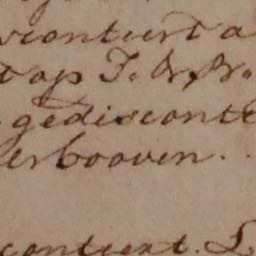 conteert a
t op T. & A.
gediscont
erbooven.
conteert. L